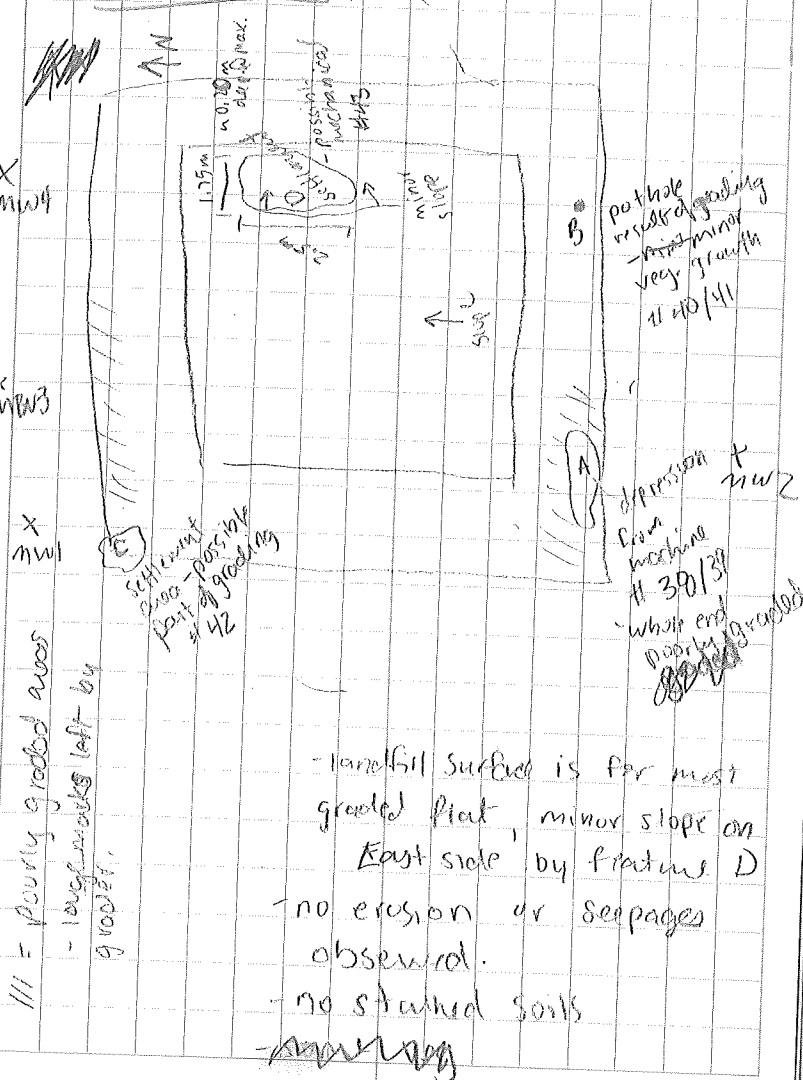 N
~0.20m
depth max.
- possible
mechanical
#43
X
MW4
1.75m
settlement
D
minor
slope
2.5m
B
pothole
result of grading
- minor
veg. growth
# 40/41
slope
MW3
A
depression
from
machine
# 38/39
- whole end
poorly graded
X
MW2
X
MW1
C
settlement
area - possible
part of grading
# 42
/// = poorly graded areas
- large marks left by
grader.
- landfill surface is for most
graded flat, minor slope on
East side by feature D
- no erosion or seepages
observed.
- no stained soils